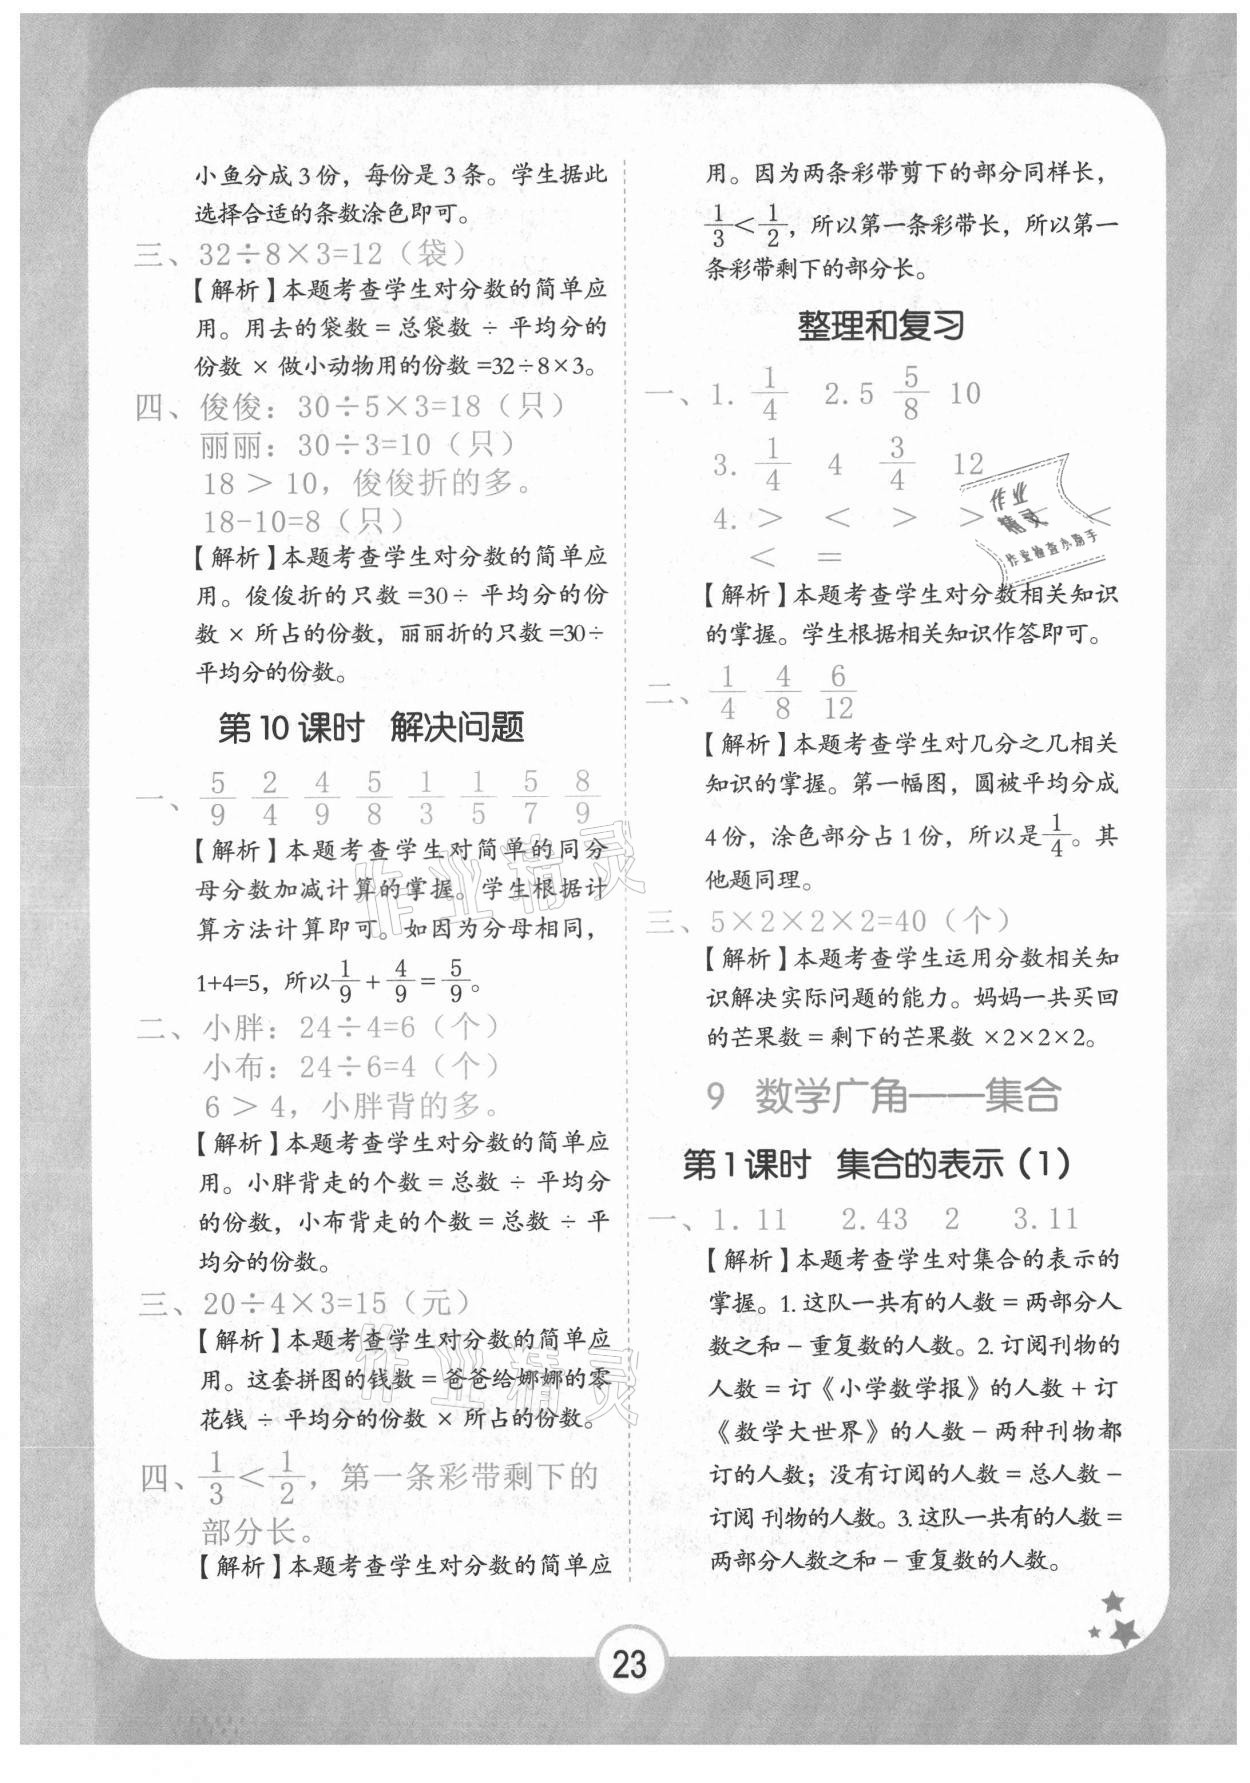 小鱼分成3份，每份是3条。学生据此
选择合适的条数涂色即可。
三、32÷8×3=12（袋）
【解析】本题考查学生对分数的简单应
用。用去的袋数=总袋数÷平均分的
份数×做小动物用的份数=32÷8×3。
四、俊俊：30÷5×3=18（只）
丽丽：30÷3=10（只）
18＞10，俊俊折的多。
18-10=8（只）
【解析】本题考查学生对分数的简单应
用。俊俊折的只数=30÷平均分的份
数×所占的份数，丽丽折的只数=30÷
平均分的份数。
第10课时 解决问题
一、5/9 2/4 4/9 5/8 1/3 1/5 5/7 8/9
【解析】本题考查学生对简单的同分
母分数加减计算的掌握。学生根据计
算方法计算即可。如因为分母相同，
1+4=5，所以1/9+4/9=5/9。
二、小胖：24÷4=6（个）
小布：24÷6=4（个）
6＞4，小胖背的多。
【解析】本题考查学生对分数的简单应
用。小胖背走的个数=总数÷平均分
的份数，小布背走的个数=总数÷平
均分的份数。
三、20÷4×3=15（元）
【解析】本题考查学生对分数的简单应
用。这套拼图的钱数=爸爸给娜娜的零
花钱÷平均分的份数×所占的份数。
四、1/3＜1/2，第一条彩带剩下的
部分长。
【解析】本题考查学生对分数的简单应
用。因为两条彩带剪下的部分同样长，
1/3＜1/2，所以第一条彩带长，所以第一
条彩带剩下的部分长。
整理和复习
一、1.1/4 2.5 5/8 10
3.1/4 4 3/4 12
4.＞ ＜ ＞ ＞ ＜
＜ =
作业
精灵
作业检查小助手
【解析】本题考查学生对分数相关知识
的掌握。学生根据相关知识作答即可。
二、1/4 4/8 6/12
【解析】本题考查学生对几分之几相关
知识的掌握。第一幅图，圆被平均分成
4份，涂色部分占1份，所以是1/4。其
他题同理。
三、5×2×2×2=40（个）
【解析】本题考查学生运用分数相关知
识解决实际问题的能力。妈妈一共买回
的芒果数=剩下的芒果数×2×2×2。
9 数学广角——集合
第1课时 集合的表示（1）
一、1.11 2.43 2 3.11
【解析】本题考查学生对集合的表示的
掌握。1.这队一共有的人数=两部分人
数之和-重复数的人数。2.订阅刊物的
人数=订《小学数学报》的人数+订
《数学大世界》的人数-两种刊物都
订的人数；没有订阅的人数=总人数-
订阅刊物的人数。3.这队一共有的人数=
两部分人数之和-重复数的人数。
作业精灵
作业精灵
23